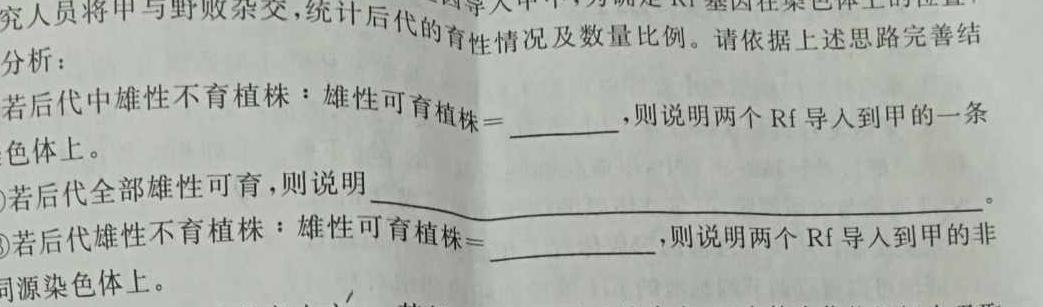 究人员将甲与野败杂交,统计后代的育性情况及数量比例。请依据上述思路完善结
分析:
若后代中雄性不育植株:雄性可育植株=________,则说明两个 Rf 导入到甲的一条
色体上。
若后代全部雄性可育,则说明________________。
③若后代雄性不育植株:雄性可育植株=________,则说明两个 Rf 导入到甲的非
同源染色体上。